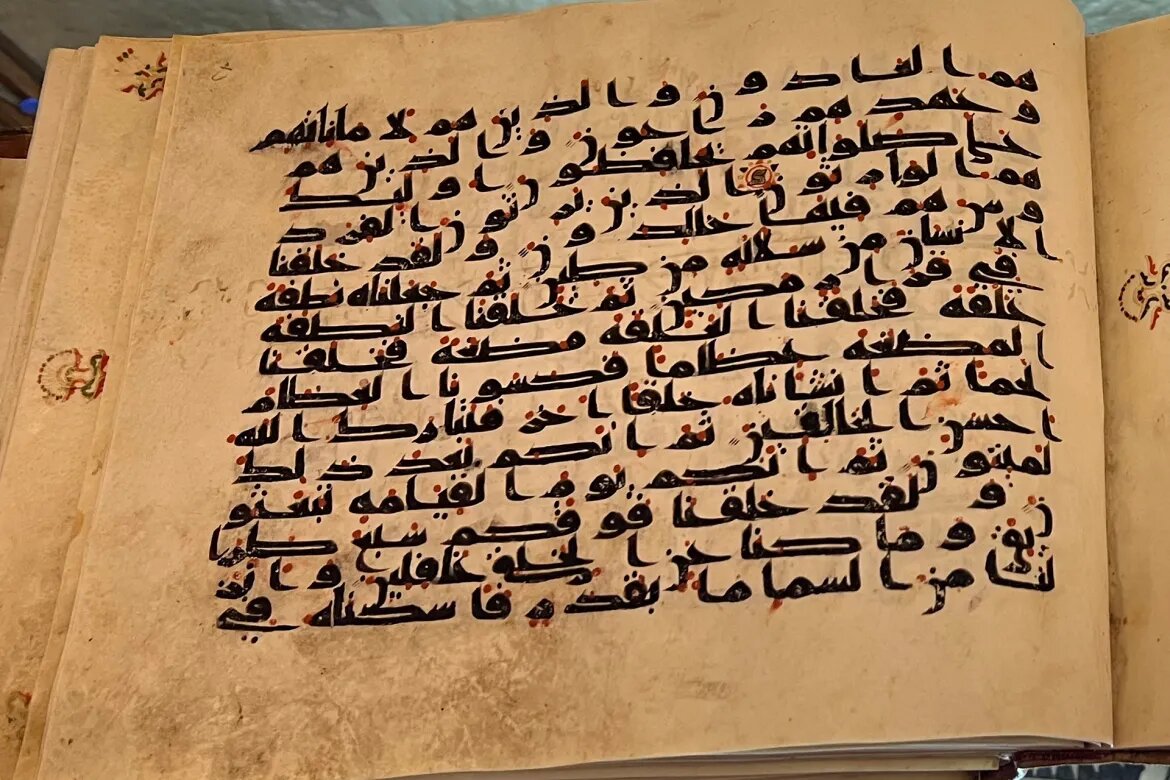 هم العادون والذين هم لاماناتهم
وعهدهم راعون والذين هم
على صلواتهم يحافظون اولئك
هم الوارثون الذين يرثون الفرد
وس هم فيها خالدون ولقد خلقنا
الانسان من سلاله من طين ثم جعلناه نطفه
في قرار مكين ثم خلقنا النطفه
علقه فخلقنا العلقه مضغه فخلقنا
المضغه عظاما فكسونا العظام
لحما ثم انشاناه خلقا اخر فتبارك الله
احسن الخالقين ثم انكم بعد ذلك
لميتون ثم انكم يوم القيامه تبعثو
ن ولقد خلقنا فوقكم سبع طرا
يق وما كنا عن الخلق غافلين وانز
لنا من السما ما بقدر فاسكناه في